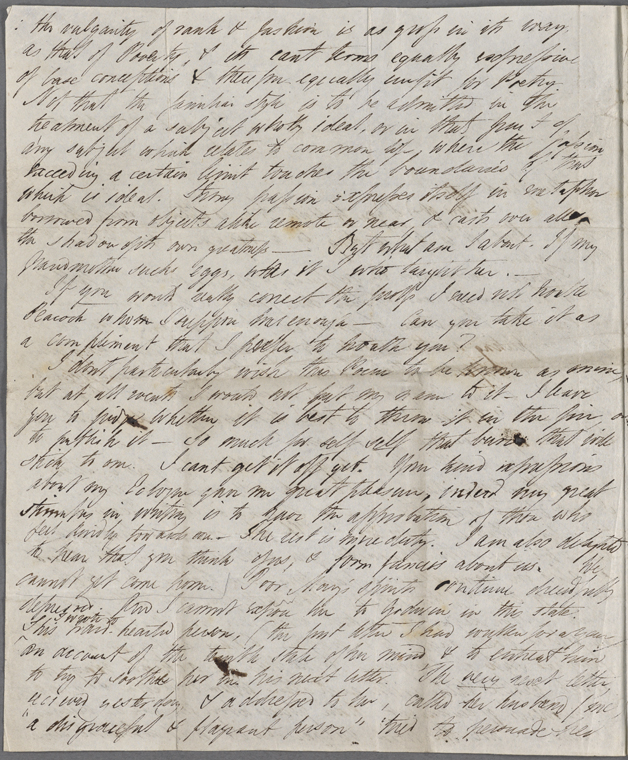 : the vulgarity of rank & fashion is as gross in its way
as that of Poverty, & its cant terms equally expressive
of base conceptions & therefore equally unfit for Poetry.
Not that the familiar style is to be admitted in the
treatment of a subject wholly ideal, or in that part of
any subject which relates to common life, where the passion
exceeding a certain limit touches the boundaries of that
which is ideal. Strong passion expresses itself in metaphor
borrowed from objects alike remote or near, & casts over all
the shadow of its own greatness — But what am I about. If my
grandmother sucks eggs, was it I who taught her. —
If you would really correct the proof I need not trouble
Peacock whom I suppose has enough — Can you take it as
a compliment that I prefer to trouble you?
I dont particularly wish this Poem to be known as mine,
but at all events I would not put my name to it — I leave
you to judge whether it is best to throw it in the fire, or
to publish it — So much for self self that burr that will
stick to one. I cant get it off yet. Your kind expressions
about my Eclogue gave me great pleasure, indeed my great
stimulus in writing is to have the approbation of those who
feel kindly towards me — The rest is mere duty. I am also delighted
to hear that you think of us, & form fancies about us. We
cannot yet come home. Poor Mary's spirits continue dreadfully
depressed. And I cannot expose her to Godwin in this state.
This hard-hearted person,
I wrote to
(the first letter I had written for a year)
an account of the state of her mind & to entreat him
to try to soothe her in his next letter. The very next letter,
received yesterday, & addressed to her, called her husband (me,)
"a disgraceful & flagrant person" tried to persuade her